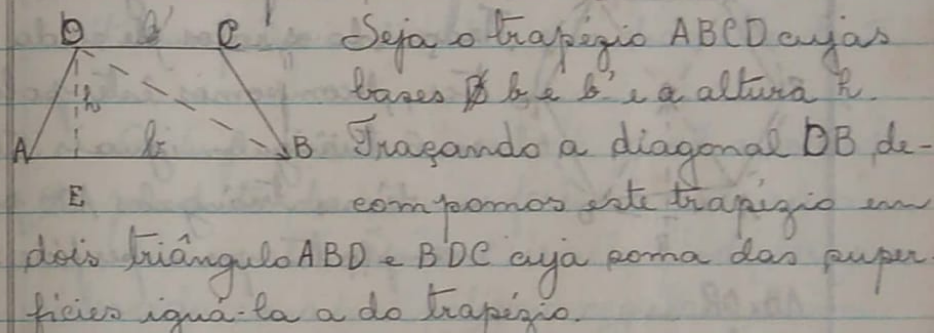 D b' C
Seja o trapézio ABCD cujas
bases b e b' e a altura h.
h
A b B
Traçando a diagonal DB, de-
E
compomos este trapézio em
dois triângulo ABD e BDC cuja soma das super
fícies iguá-la a do trapézio.